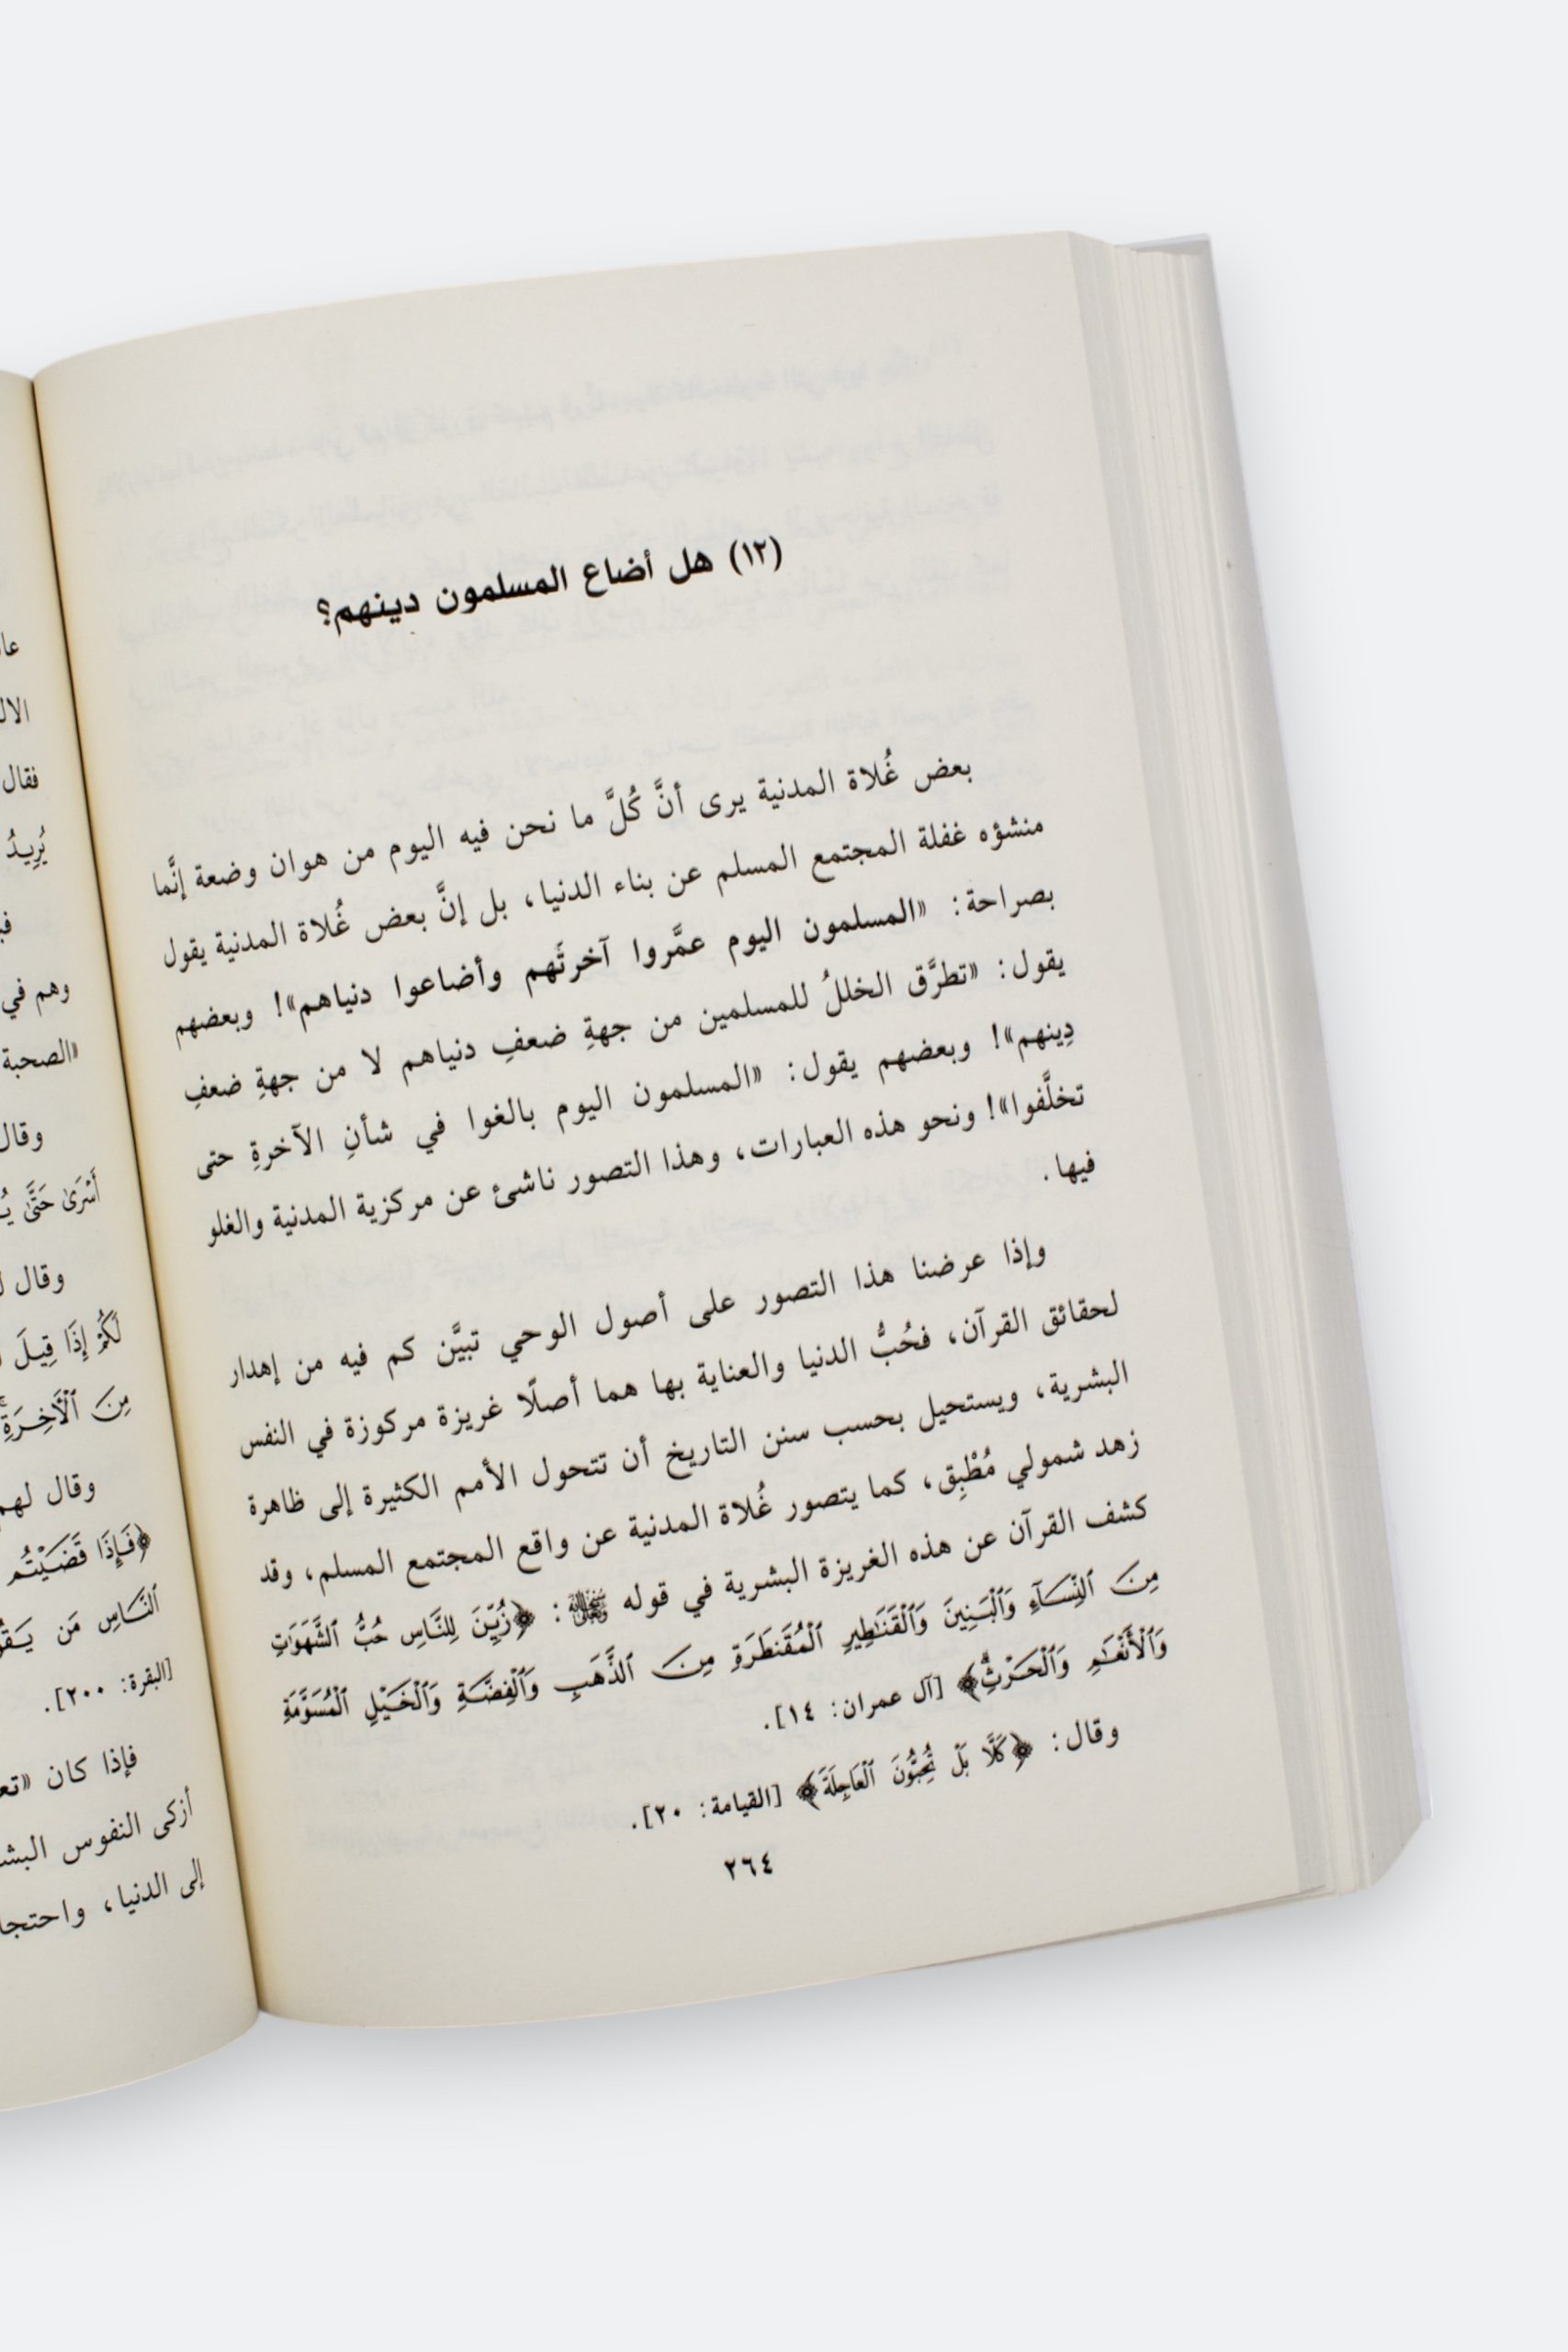 (١٢) هل أضاع المسلمون دينهم؟
بعض غُلاة المدنية يرى أنَّ كُلَّ ما نحن فيه اليوم من هوان وضعة إنَّما
منشؤه غفلة المجتمع المسلم عن بناء الدنيا، بل إنَّ بعض غُلاة المدنية يقول
بصراحة: «المسلمون اليوم عمَّروا آخرتَهم وأضاعوا دنياهم»! وبعضهم
يقول: «تطرَّق الخللُ للمسلمين من جهةِ ضعفِ دنياهم لا من جهةِ ضعفِ
دِينهم»! وبعضهم يقول: «المسلمون اليوم بالغوا في شأنِ الآخرةِ حتى
تخلَّفوا»! ونحو هذه العبارات، وهذا التصور ناشئ عن مركزية المدنية والغلو
فيها.
وإذا عرضنا هذا التصور على أصول الوحي تبيَّن كم فيه من إهدار
لحقائق القرآن، فحُبُّ الدنيا والعناية بها هما أصلًا غريزة مركوزة في النفس
البشرية، ويستحيل بحسب سنن التاريخ أن تتحول الأمم الكثيرة إلى ظاهرة
زهد شمولي مُطْبِق، كما يتصور غُلاة المدنية عن واقع المجتمع المسلم، وقد
كشف القرآن عن هذه الغريزة البشرية في قوله : ﴿زُيِّنَ لِلنَّاسِ حُبُّ ٱلشَّهَوَٰتِ
مِنَ ٱلنِّسَآءِ وَٱلْبَنِينَ وَٱلْقَنَٰطِيرِ ٱلْمُقَنطَرَةِ مِنَ ٱلذَّهَبِ وَٱلْفِضَّةِ وَٱلْخَيْلِ ٱلْمُسَوَّمَةِ
وَٱلْأَنْعَٰمِ وَٱلْحَرْثِۗ﴾ [آل عمران: ١٤].
وقال: ﴿كَلَّا بَلْ تُحِبُّونَ ٱلْعَاجِلَةَ﴾ [القيامة: ٢٠].
٢٦٤
فقال
يُرِيدُ
وهم في
«الصحبة
وقال
أَسْرَىٰ حَتَّىٰ
وقال
لَكُمْ إِذَا قِيلَ
مِنَ ٱلْأَخِرَةِ
وقال لهم
﴿فَإِذَا قَضَيْتُم
ٱلنَّاسِ مَن
[البقرة: ٢٠٠].
فإذا كان
أزكى النفوس
إلى الدنيا،